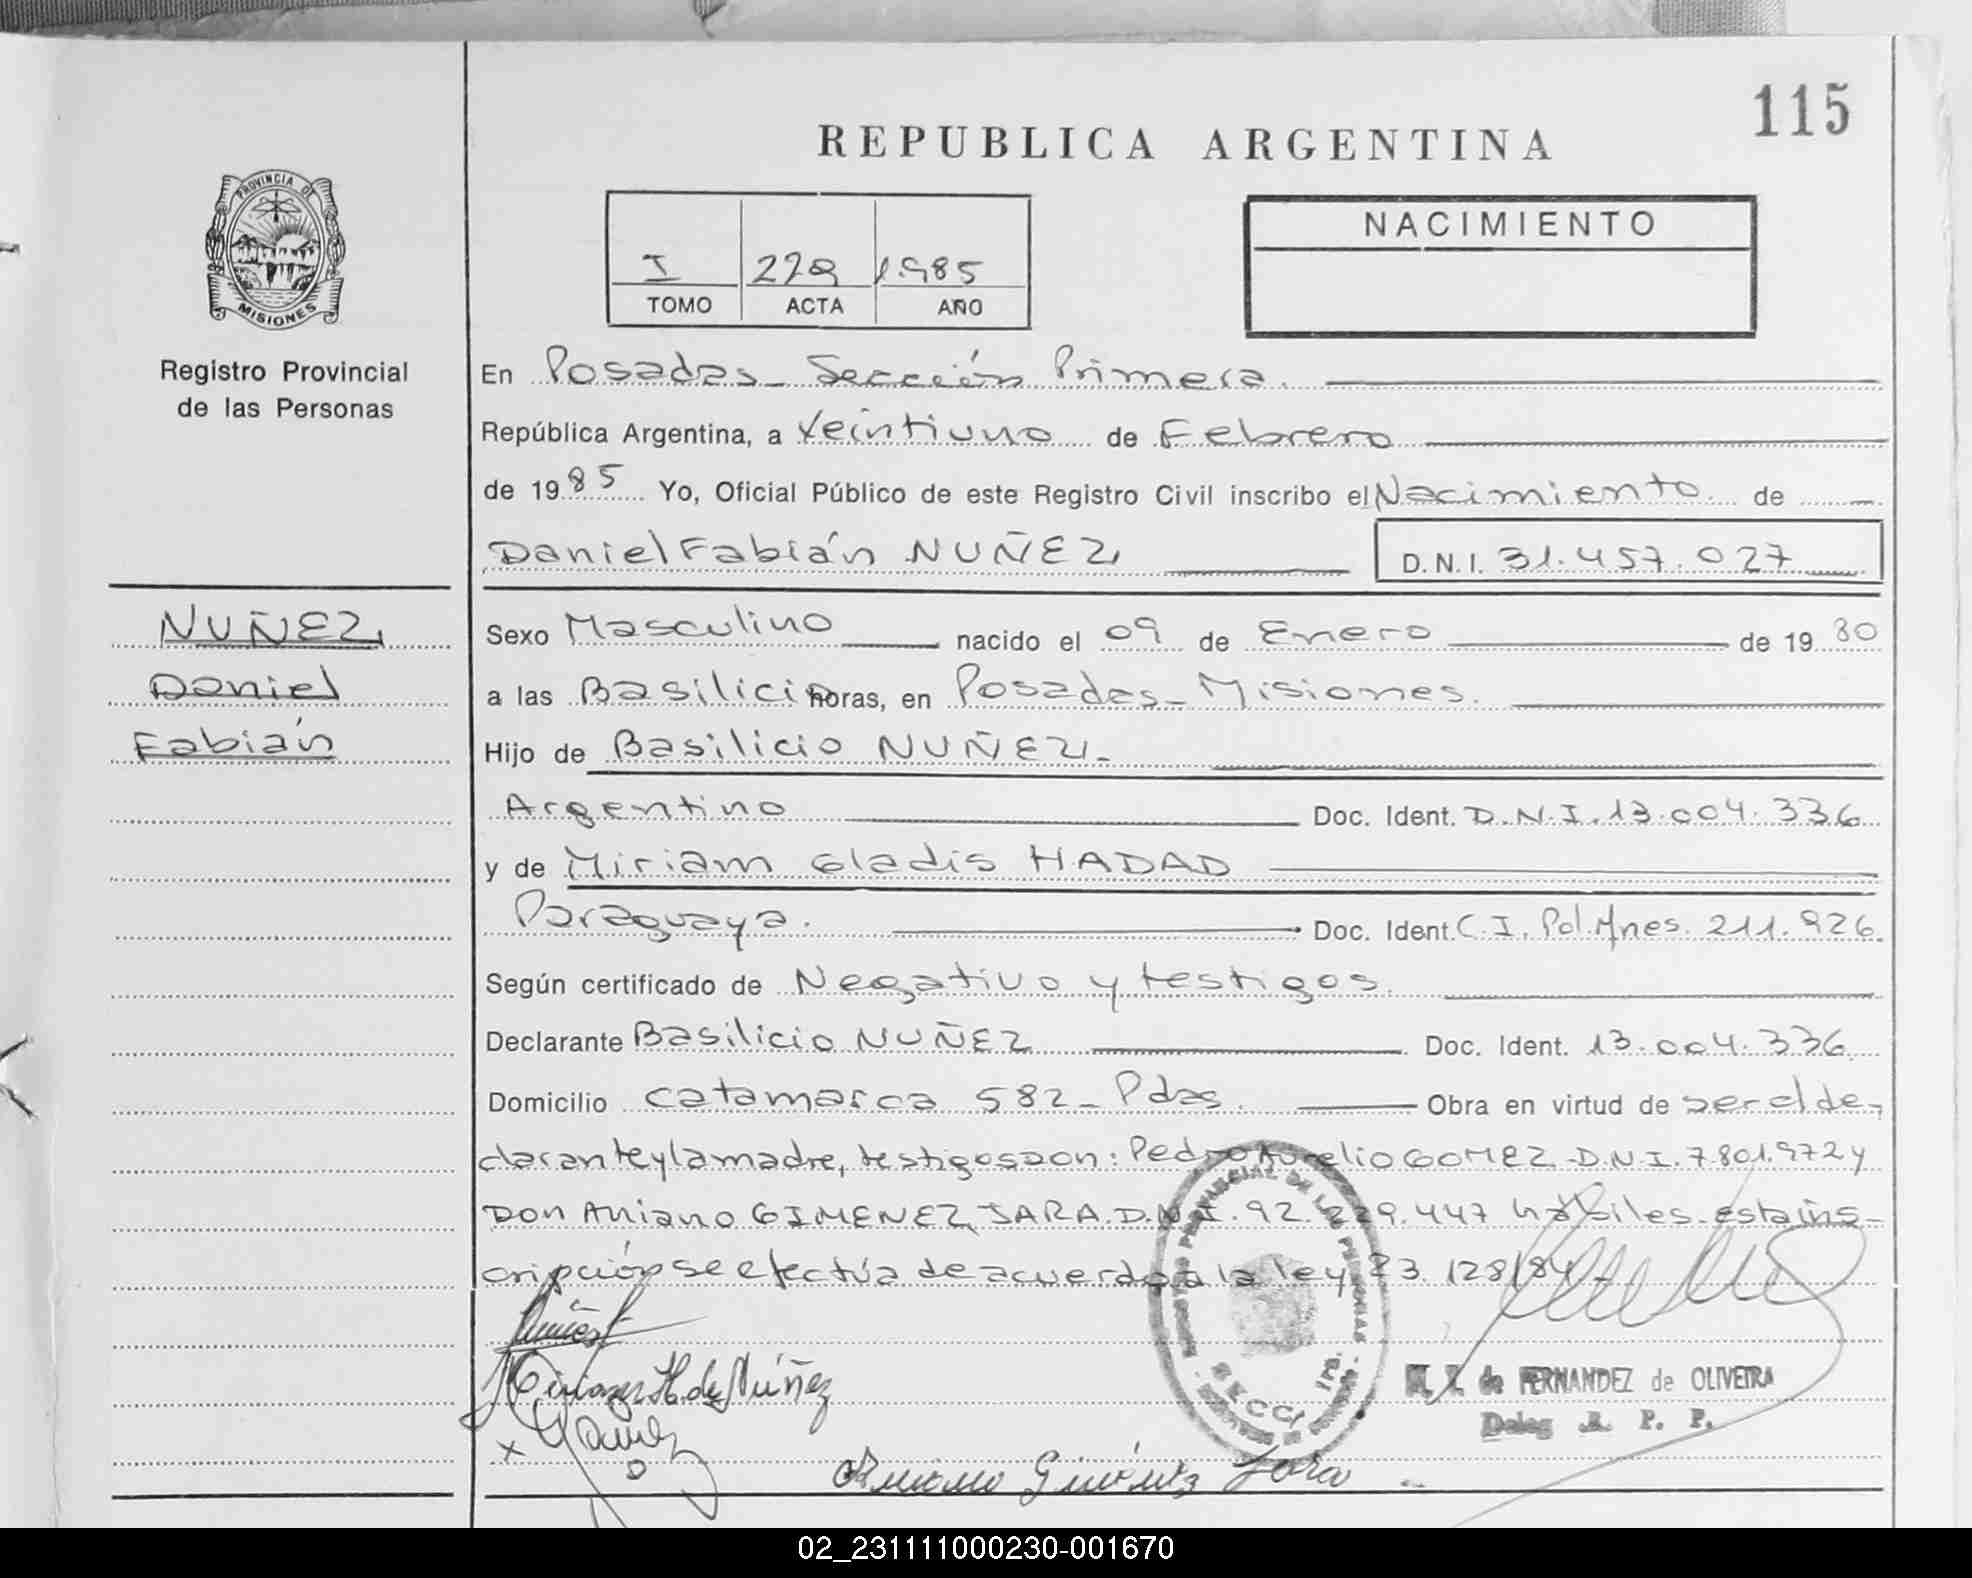 115
REPUBLICA ARGENTINA
PROVINCIA DE
MISIONES
Registro Provincial
de las Personas
I 229 1.985
TOMO ACTA AÑO
NACIMIENTO
En Posadas - Sección Primera.
República Argentina, a Veintiuno de Febrero
de 1985 Yo, Oficial Público de este Registro Civil inscribo el Nacimiento de
Daniel Fabián NUÑEZ D.N.I. 31.457.027
NUÑEZ,
Daniel
Fabián
Sexo Masculino nacido el 09 de Enero de 19
a las Basilici horas, en Posadas - Misiones.
Hijo de Basilicio NUÑEZ -
Argentino Doc. Ident. D.N.I. 13.004.336
y de Miriam Gladis HADAD
Paraguaya. Doc. Ident. C.I. Pol. Mnes. 211.926.
Según certificado de Negativo y testigos.
Declarante Basilicio NUÑEZ Doc. Ident. 13.004.336
Domicilio Catamarca 582 - Pdas. Obra en virtud de ser el de-
clarante y la madre, testigos son: Pedro Aurelio GOMEZ D.N.I. 7.801.972 y
Don Aniano GIMENEZ JARA. D.N.I. 92.229.447 hábiles. esta ins-
cripción se efectúa de acuerdo a la ley 23.128/84.
H. de Núñez
Aniano Giménez Jara
REGISTRO PROVINCIAL DE LAS PERSONAS
de FERNANDEZ de OLIVEIRA
Deleg R. P. P.
02_231111000230-001670